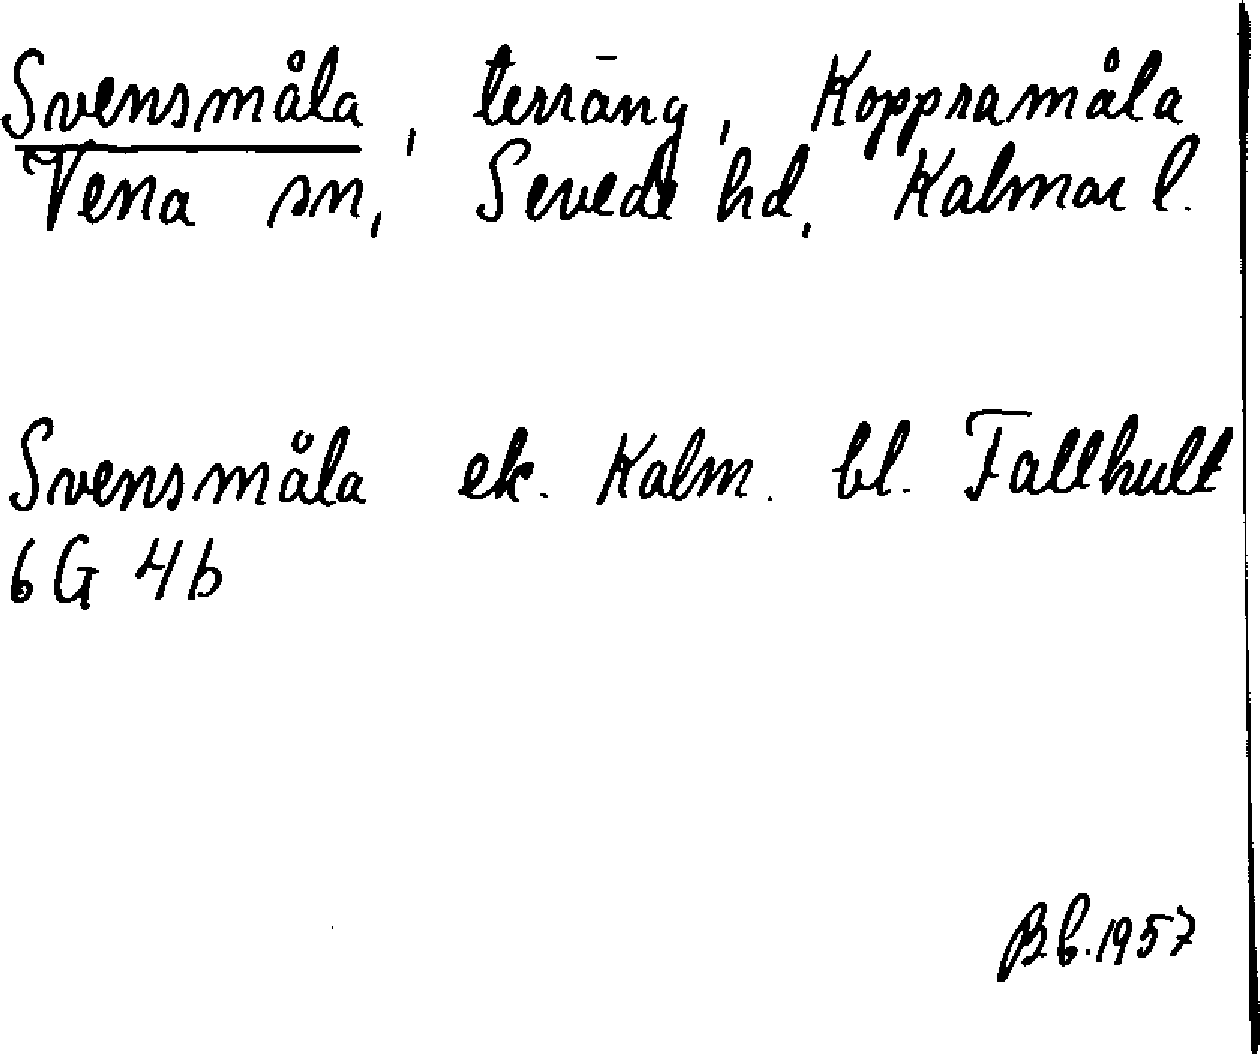 Svensmåla, terräng, Koppramåla
Vena sn, Sevede hd, Kalmar l.
Svensmåla ek. Kalm. bl. Fallhult
6G 4b
B.b. 1957